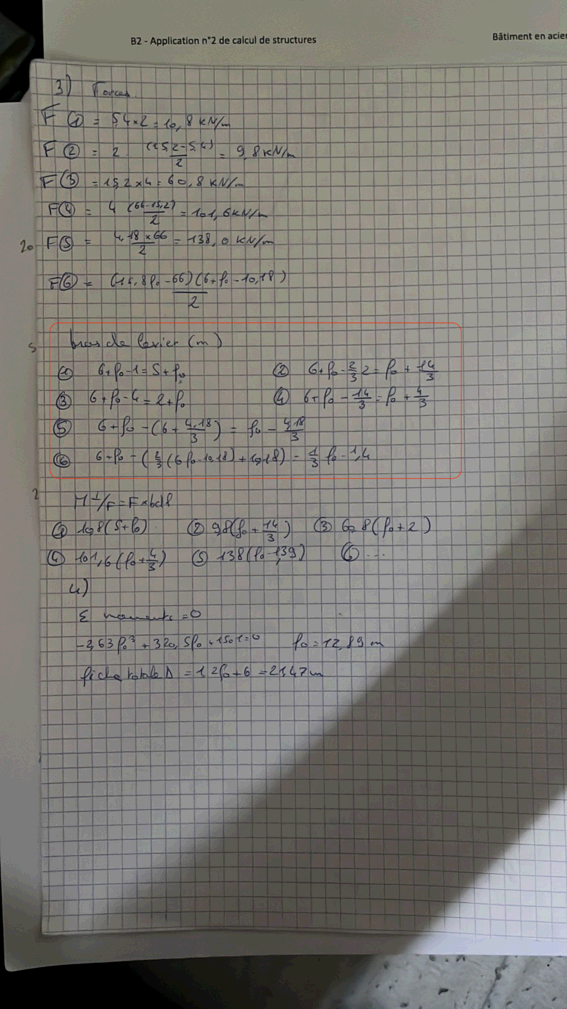 B2 - Application n°2 de calcul de structures
Bâtiment en acier
3) Forces
F① = 5,4×2 = 10,8 kN/m
F② = 2 (15,2-5,4)/2 = 9,8 kN/m
F③ = 15,2×4 = 60,8 kN/m
F④ = 4 (66-15,2)/2 = 101,6 kN/m
20
F⑤ = 4,18×66/2 = 138,0 kN/m
F⑥ = (16,8f₀-66)(6+f₀-10,18)/2
bras de levier (m)
① 6+f₀-1=5+f₀ ② 6+f₀-2/3 2=f₀+14/3
③ 6+f₀-4=2+f₀ ④ 6+f₀-14/3=f₀+4/3
⑤ 6+f₀-(6+4,18/3) = f₀-4,18/3
⑥ 6+f₀-(2/3(6f₀-10,18)+10,18) = 1/3 f₀-1,4
M⊥/F = F×bdl
① 10,8(5+f₀) ② 9,8(f₀+14/3) ③ 60,8(f₀+2)
④ 101,6(f₀+4/3) ⑤ 138(f₀-1,39) ⑥ ...
4)
Σ moments=0
-2,63f₀³ + 320,5f₀ + 1501=0 f₀=12,89 m
fiche totale D = 1,2f₀+6 = 21,47m